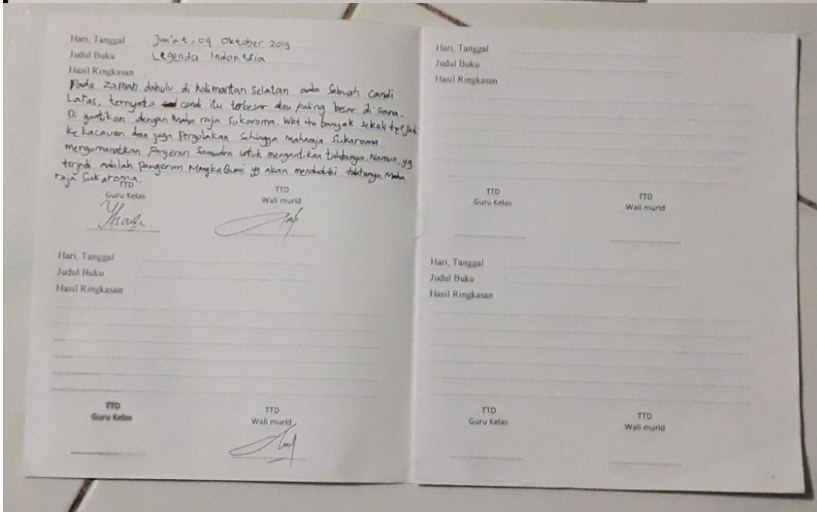 Hari, Tanggal Jum'at, 04 Oktober 2019
Judul Buku Legenda Indonesia
Hasil Ringkasan
Pada zaman dahulu di Kalimantan Selatan ada Sebuah Candi
Laras, ternyata candi itu terbesar atau paling besar di sana.
Di gantikan dengan Maha raja Sukaroma. Wkt itu banyak sekali terjadi
ke kacauan dan juga Pergolakan Sehingga maharaja Sukaroma
mengamanatkan Pangeran Samudra untuk mengantikan tahtanya. Namun, yg
terjadi adalah pangeran Mangkubumi yg akan menduduki tahtanya Maha
raja Sukaroma.
TTD
Guru Kelas
TTD
Wali murid
Hari, Tanggal
Judul Buku
Hasil Ringkasan
TTD
Guru Kelas
TTD
Wali murid
Hari, Tanggal
Judul Buku
Hasil Ringkasan
TTD
Guru Kelas
TTD
Wali murid
Hari, Tanggal
Judul Buku
Hasil Ringkasan
TTD
Guru Kelas
TTD
Wali murid